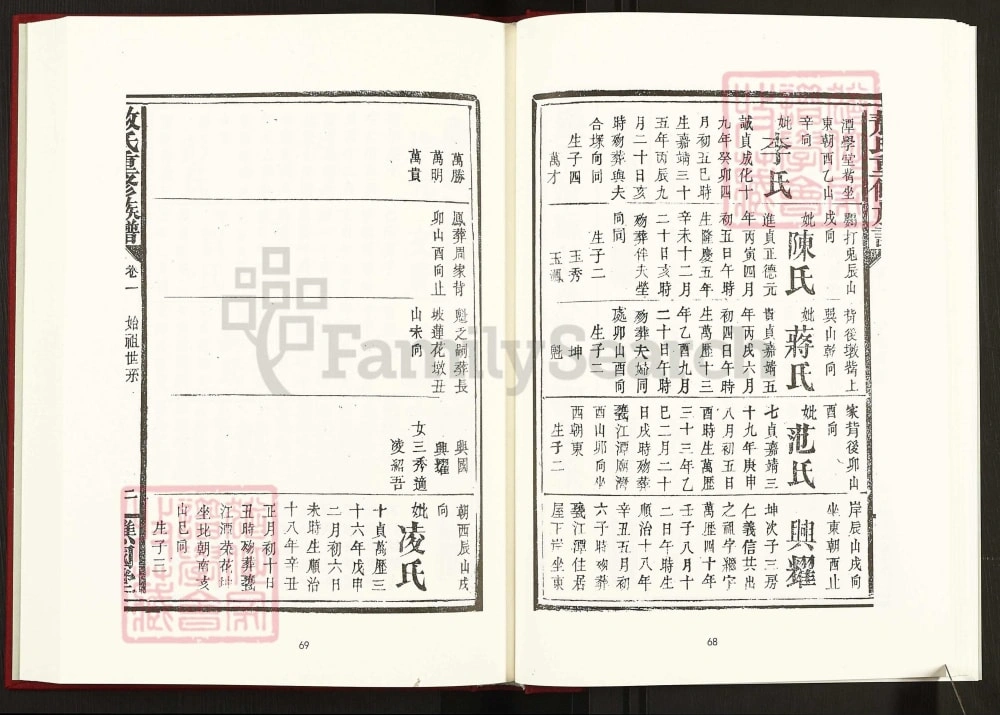 潭學堂背坐
東朝西乙山
辛向
妣李氏
誠貞成化十
九年癸卯四
月初五巳時
生嘉靖三十
五年丙辰九
月二十日亥
時歿葬與夫
合塚向同
生子四
萬才
關打兎辰山
戌向
妣陳氏
進貞正德元
年丙寅四月
初五日午時
生隆慶五年
辛未十二月
二十日亥時
歿葬伴夫塋
向同
生子二
玉秀
玉鳳
背後墩背上
巽山乾向
妣蔣氏
貴貞嘉靖五
年丙戌六月
初四日午時
生萬歷十三
年乙酉九月
二十日午時
歿葬夫婦同
處卯山酉向
生子二
坤
魁
家背後卯山
酉向
妣范氏
七貞嘉靖三
十九年庚申
八月初五日
酉時生萬歷
三十三年乙
巳二月二十
日戌時歿葬
甕江潭廟灣
酉山卯向坐
西朝東
生子二
岸辰山戌向
坐東朝西止
興耀
坤次子三房
仁義信共出
之祖字繼宇
萬歷四十年
壬子八月十
二日午時生
順治十八年
辛丑五月初
六子時歿葬
甕江潭住居
屋下岸坐東
68
萬勝
萬明
萬貴
鳳葬周家背
卯山酉向止
魁之嗣葬長
坡蓮花墩丑
山未向
興國
興耀
女三秀適
凌紹吾
朝西辰山戌
向
妣凌氏
十貞萬歷三
十六年戊申
二月初六日
未時生順治
十八年辛丑
正月初十日
丑時歿葬甕
江潭菜花坤
坐北朝南亥
山巳向
生子三
敖氏重修族譜
卷一
始祖世系
二
譙國堂
69
FamilySearch